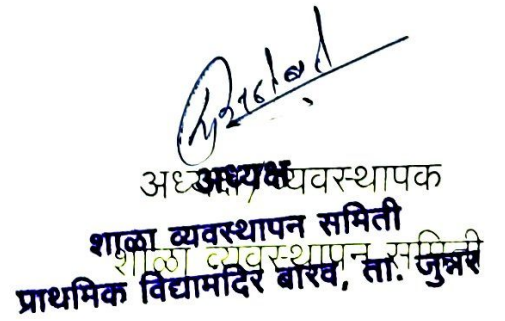 अध्यक्ष
अध्यक्ष/व्यवस्थापक
शाळा व्यवस्थापन समिती
शाळा व्यवस्थापन समिती
प्राथमिक विद्यामंदिर बारव, ता. जुन्नर